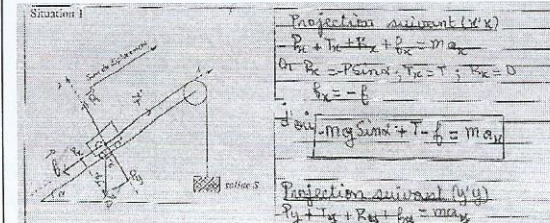 Situation 1
Sens de déplacement
solide S
Projection suivant (x'x)
Px + Tx + Rx + fx = max
Or Px = -Psinα ; Tx = T ; Rx = 0
fx = -f
d'où -mg Sinα + T - f = max
Projection suivant (y'y)
Py + Ty + Ry + fy = may